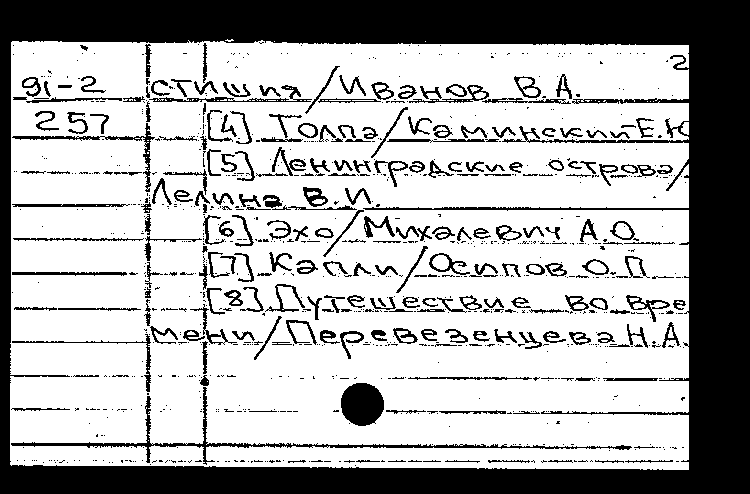 2
91-2 стишия/Иванов В.А.
257 [4] Толпа/Каминский Е.Ю
[5] Ленинградские острова/
Лелина В.И.
[6] Эхо/Михалевич А.О.
[7] Капли/Осипов О.П
[8] Путешествие во вре
мени/Перевезенцева Н.А.